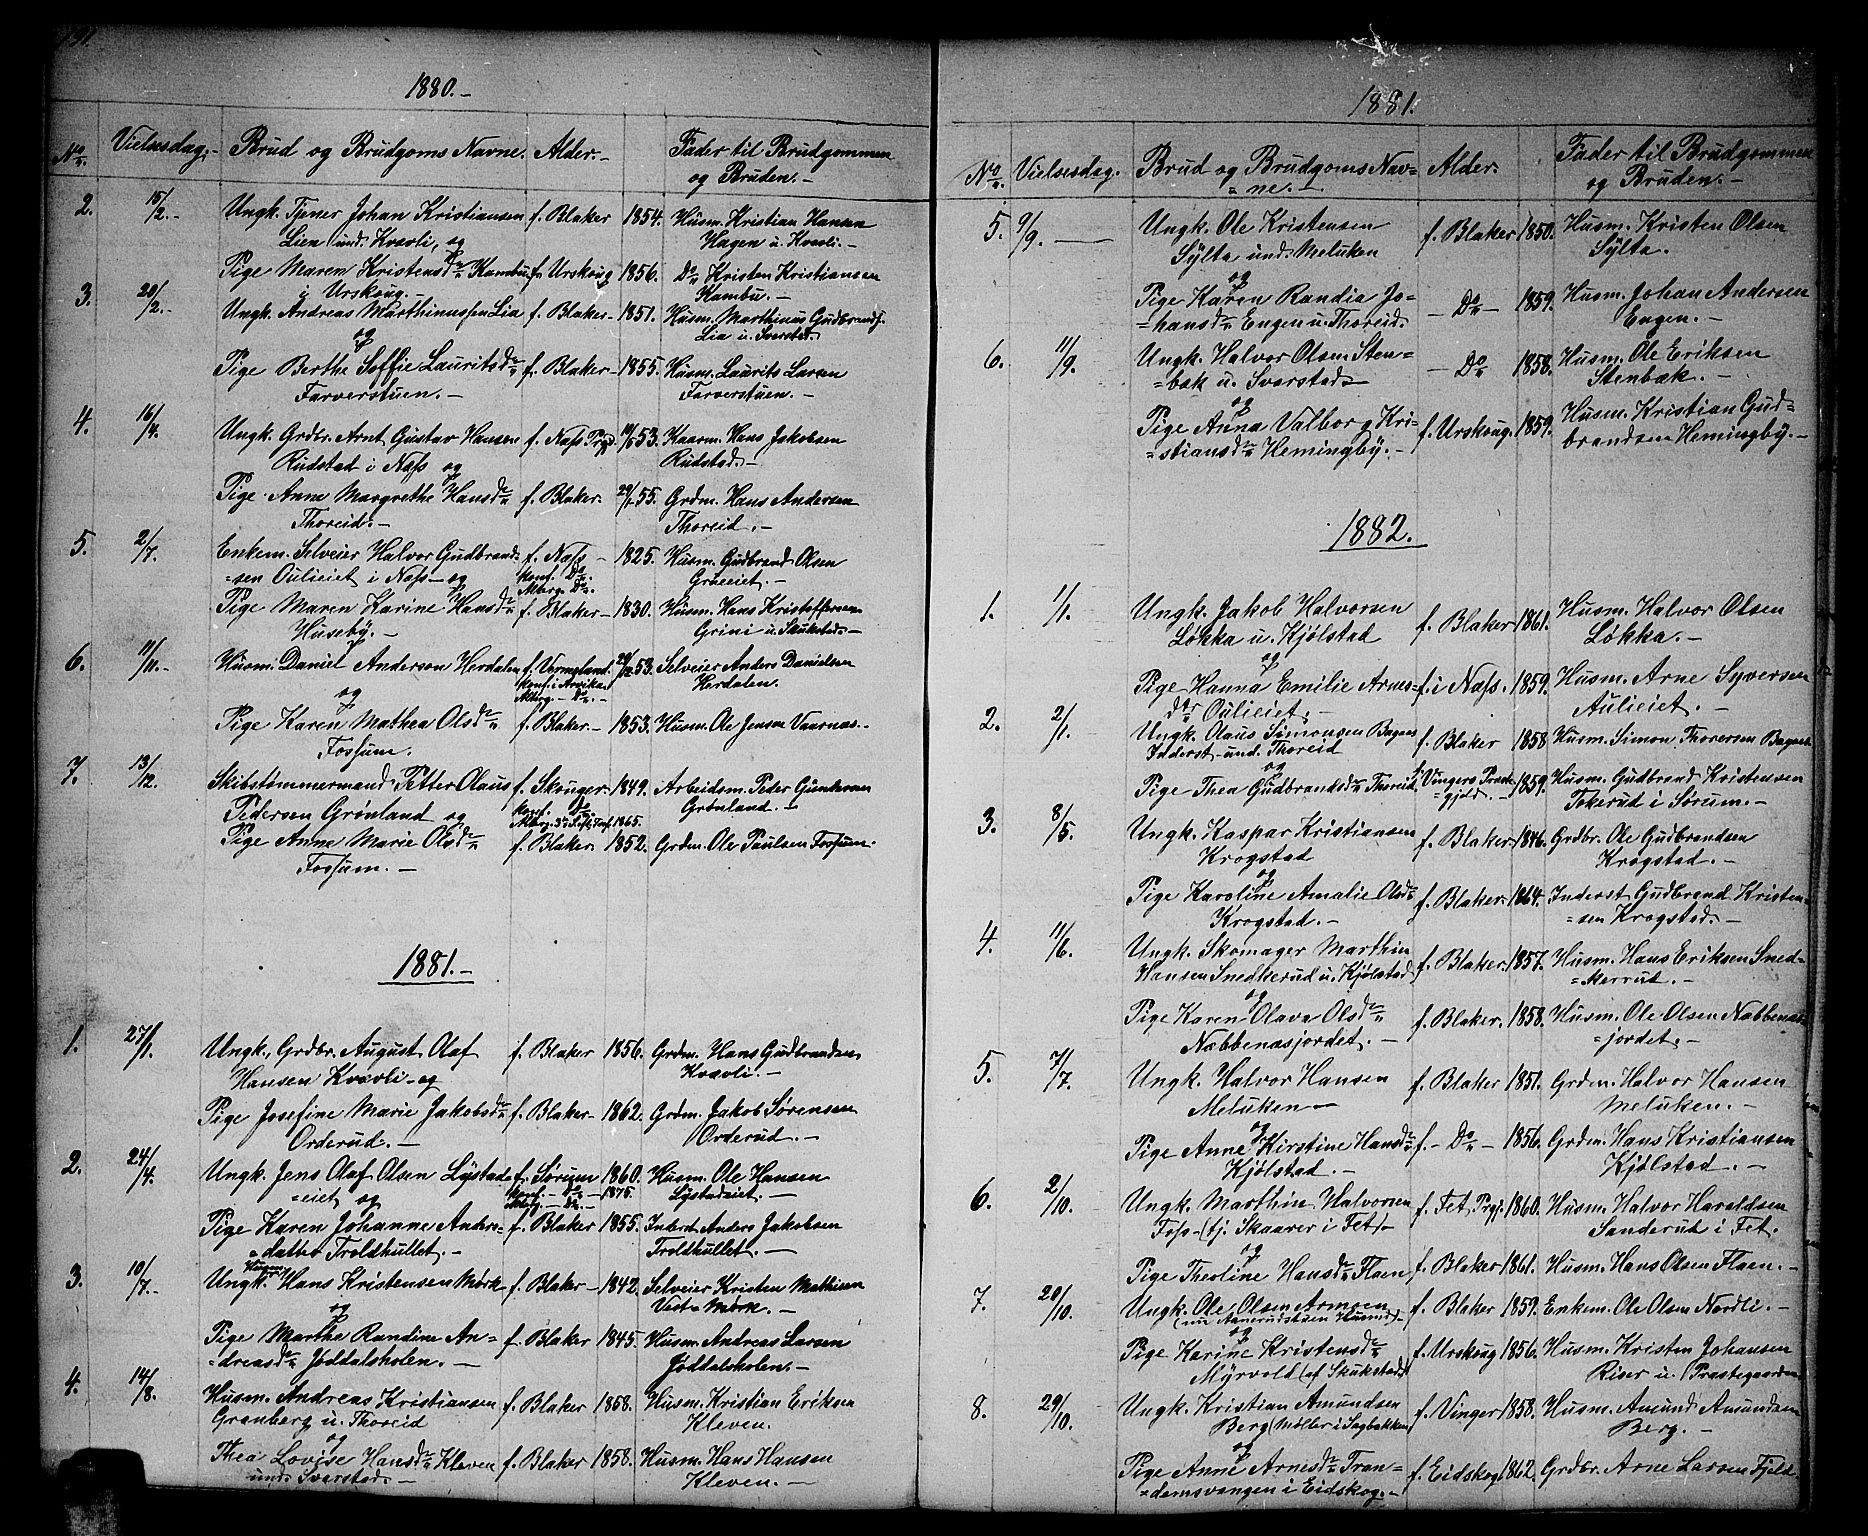 191.
1880.-
No. Vielsesdag.- Brud og Brudgoms Navne. Alder.- Fader til Brudgommen
og Bruden.-
2. 15/2.- Ungk. Tjener Johan Kristiansen f. Blaker 1854. Husm. Kristian Hansen
Lien und. Kvevli, og Hagen u. Kvevli.-
Pige Maren Kristensdr Kambu f. Urskoug 1856. Do Kristen Kristiansen
i Urskoug.- Kambu.-
3. 20/2.- Ungk. Andreas Marthinussen Lia f. Blaker- 1851. Husm. Marthinus Gudbrands.
og Lia u. Svarstad.
Pige Berthe Soffie Lauritsdr f. Blaker- 1855. Husm. Laurits Larsen
Farverstuen.- Farverstuen.-
4. 16/4. Ungk. Grdbr. Arnt Gustav Hansen f. Næss Prgd 53. Kaarm. Hans Jakobsen
Rudstad i Næss og Rudstad.-
Pige Anne Margrethe Hansdr f. Blaker. 55. Grdm. Hans Andersen
Thoreid.- Thoreid.-
5. 2/7. Enkem. Selveier Halvor Gudbrand= f. Næss- 1825. Husm. Gudbrand Olsen
=sen Oulieiet i Næss og konf. Do. Græeiet.-
Atberg. Do.
Pige Maren Karine Hansdr f. Blaker- 1830. Husm. Hans Kristoffersen
Huseby.- Grini u. Skukstad.-
6. 11/11.- Husm. Daniel Anderson Herdalen f. Vermeland. 53. Selveier Anders Danielsen
og konf. i Arvika. Herdalen.
Atberg.- Do.-
Pige Karen Mathea Olsdr f. Blaker- 1853. Husm. Ole Jensen Vaarnæs.-
Fossum.
7. 13/12. Skibstømmermand Petter Olaus f. Skouger 1849. Arbeidsm. Peder Gundersen
Pedersen Grønland og konf. Do. Grønland.-
1865.
Pige Anne Marie Olsdr f. Blaker. 1852. Grdm. Ole Paulsen Fossum.
Fossum.-
1881.-
1. 27/1. Ungk., Grdbr. August Olaf f. Blaker 1856. Grdm. Hans Gudbrandsen
Hansen Kvevli og Kvevli.-
Pige Josefine Marie Jakobsdr f. Blaker- 1862. Grdm. Jakob Sørensen
Orderud.- Orderud.-
2. 24/4. Ungk. Jens Olaf Olsen Lystad= f. Sørum 1860. Husm. Ole Hansen
=eiet og konf.- Do- 1875. Lystadeiet.-
Atberg.- Do.-
Pige Karen Johanne Anders= f. Blaker 1855. Inderst Anders Jakobsen
=datter Troldhullet.- Troldhullet.-
3. 10/7.- Ungk. Husm. Hans Kristensen Mørk f. Blaker- 1842. Selveier Kristen Mathisen
og Vest-Mørk.-
Pige Marthe Randine An= f. Blaker 1845. Husm. Andreas Larsen
=dreasdr Jøddalsholen.- Jøddalsholen.-
4. 14/8. Husm. Andreas Kristiansen f. Blaker 1858. Husm. Kristian Eriksen
Granberg u. Thoreid Kleven.
og
Thea Lovise Hansdr Kleven f. Blaker 1858. Husm. Hans Hansen
und. Svarstad.- Kleven.-
1881.
No. Vielsesdag. Brud og Brudgoms Nav= Alder. Fader til Brudgommen
=ne.- og Bruden.-
5. 9/9.- Ungk. Ole Kristensen f. Blaker 1850. Husm. Kristen Olsen
Sylta und. Meluken Sylta.
og
Pige Karen Randia Jo= - Do- 1859. Husm. Johan Andersen
=hansdr Engen u. Thoreid. Engen.-
6. 11/9. Ungk. Halvor Olsen Sten= - Do 1858. Husm. Ole Eriksen
=bæk u. Svarstad Stenbæk.-
og
Pige Anna Valborg Kri= f. Urskoug. 1859. Husm. Kristian Gud=
=stiansdr Hemingby.- brandsen Hemingby.-
1882.
1. 1/1. Ungk. Jakob Halvorsen f. Blaker 1861. Husm. Halvor Olsen
Løkka u. Kjølstad Løkka.-
og
Pige Hanna Emilie Arnes= f. i Næss. 1859. Husm. Arne Syversen
dtr Oulieiet.- Aulieiet.-
2. 2/1. Ungk. Olaus Simonsen Bagaas f. Blaker 1858 Husm. Simon Thorersen Bagaas.
Inderst und. Thoreid
og
Pige Thea Gudbrandsdr Thoreid f. Vingers Præste= 1859. Husm. Gudbrand Kristensen
gjeld.- Tokerud i Sørum.-
3. 8/5. Ungk. Kaspar Kristiansen f. Blaker 1846. Grdbr. Ole Gudbrandsen
Krogstad Krogstad.-
og
Pige Karoline Amalie Olsdr f. Blaker. 1864. Inderst Gudbrand Kristen=
Krogstad.- =sen Krogstad.-
4. 11/6. Ungk. Skomager Marthin f. Blaker. 1857. Husm. Hans Eriksen Sned=
Hansen Snedkerud u. Kjølstad =kerrut.-
og
Pige Karen Olava Olsdr f. Blaker. 1858. Husm. Ole Olsen Næbbenæs=
Næbbenæsjordet.- =jordet.-
5. 7/7. Ungk. Halvor Hansen f. Blaker 1851. Grdm. Halvor Hansen
Meluken Meluken.-
og
Pige Anne Kirstine Hansdr f.- Do- 1856. Grdm. Hans Kristiansen
Kjølstad.- Kjølstad.-
6. 2/10. Ungk. Marthin Halvorsen f. Fet Prgj. 1860. Husm. Halvor Haraldsen
Foss- (tj. Skaarer i Fet)- Sanderud i Fet.
og
Pige Theoline Hansdr Flaen f. Blaker 1861. Husm. Hans Olsen Flaen.-
7. 20/10. Ungk. Ole Olsen Armoen f. Blaker 1859. Enkem. Ole Olsen Nordli.-
og
Pige Karine Kristensdr f. Urskoug 1856. Husm. Kristen Johansen
Myrvold (af Skukstad) Riser u. Præstegaarden
8. 29/10. Ungk. Kristian Amundsen f. Vinger 1858. Husm. Amund Amundsen
Berg (Møller i Sagbakken) Berg.-
og
Pige Anne Arnesdr Tran= f. Eidskog 1862. Grdbr. Arne Larsen Fjeld
=demsvangen i Eidskog.-